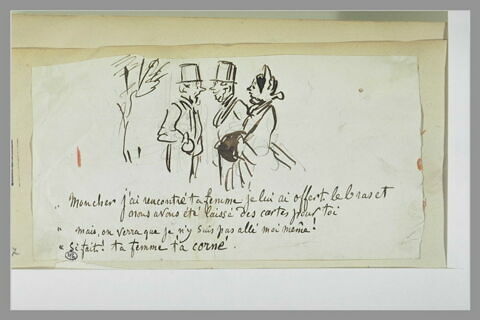 „ Mon cher j'ai rencontré ta femme je lui ai offert le bras et
nous avons été laissé des cartes pour toi
" mais, on verra que je n'y suis pas allé moi même!
" Si fait! ta femme t'a corné.